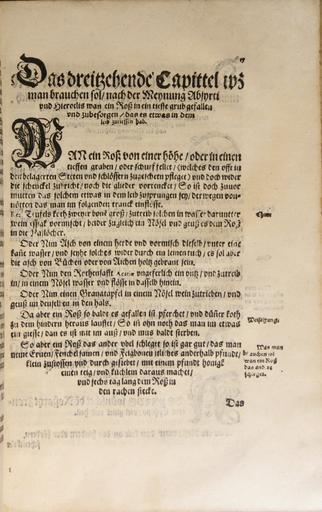 Das dreitzehende Capittel wz
man brauchen sol / nach der Meynung Absyrti
vnd Hieroclis wan ein Roß in ein tieffe grub gefallen
vnd zubesorgen / das es etwas in dem
leib zurissen hab.
WAN ein Roß von einer höhe / oder in einen
tieffen graben / oder schurf fellet / (welches den offt in
den belagerten Stetten vnd schlössern zugeschehen pfleget) vnd doch weder
die schenckel zubricht / noch die glieder vorrencket / So ist doch zuuor
mutten das jehmen etwas in dem leib zusprungen sey / derwegen von
nöten das man jm folgenden tranck einflösse.
Teufels koth zweier bonē groß / zutreib solchen in wasser darunter
wein essig vormischt / badet zugleich ein Nösel vnd geuß es dem Roß
in die Naßlöcher.
Oder Nim Asch von einem herde vnd vormisch dieselb / vnter eine
laute wasser / vnd seyhe solches wider durch ein leinen tuch / es sol aber
die asch von Büchen oder von Aichen holtz gebrant sein.
Oder Nim den Rothensafft Acacie vngeferlich ein vntz / vnd zutreib
in / in einem Nösel wasser vnd flösse in dasselb hinein.
Oder Nim einen Granatapfel in einem Nösel wein zutrieben / vnd
geuß jm denselben in den hals.
Da aber ein Roß so baldt es gefallen ist pferchet / vnd düster koth
zu dem hindern heraus lauffet / So ist ohn noth das man im etwas
ein giesse / dan es ist mit im auß / vnd mus baldt sterben.
So aber ein Roß das ander vbel schleget so ist gar gut / das man
neme Eruen / Fenchel samen / vnd Feigbonen jtliches anderhalb pfundt /
klein zustossen vnd durch gesiebet / mit einem pfundt honig
einen teig / vnd küchlem daraus machet /
vnd sechs tag lang dem Roß in
den rachen stecke.
Was man
brauchen sol
wan ein Roß
das ander
schleget.
Das